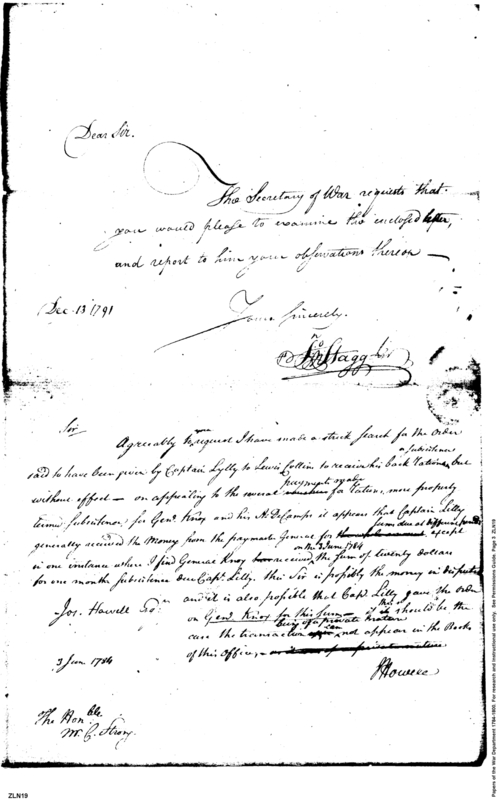 Dear Sir.
The Secretary of War requests that
you would please to examine the enclosed letter,
and report to him your observations thereon —
Dec. 13 1791
Yours Sincerely.
Jno Stagg Jr
Sir
Agreeably to your request I have made a strick search for the order
& subsistence
said to have been given by Captain Lylly to Lewis Collin to receive his back Rations but
payments made
without effect — on appealing to the several for Rations, more properly
termed Subsistence, for Genl. Knox and his A. DeCamps it appears that Captain Lilly
sums due at different periods
generally received the Money from the paymaster General for except
on the 3 June 1784
in one instance where I find General Knox received the sum of twenty dollars
for one month Subsistence due Capt. Lilly. this Sir is possibly the money in dispute
and it is also possible that Capt. Lilly gave the order
Jos. Howell Esqr
on Genl. Knox for this sum — if this should be the
being of a private nature
case the transaction can not appear in the Books
of this Office, or it is of a private nature
3 June 1784
JHowell
The Honble.
Mr. C. Strong
ZLN19
Papers of the War Department 1784-1800. For research and instructional use only. See Permissions Guide. Page 3 ZLN19